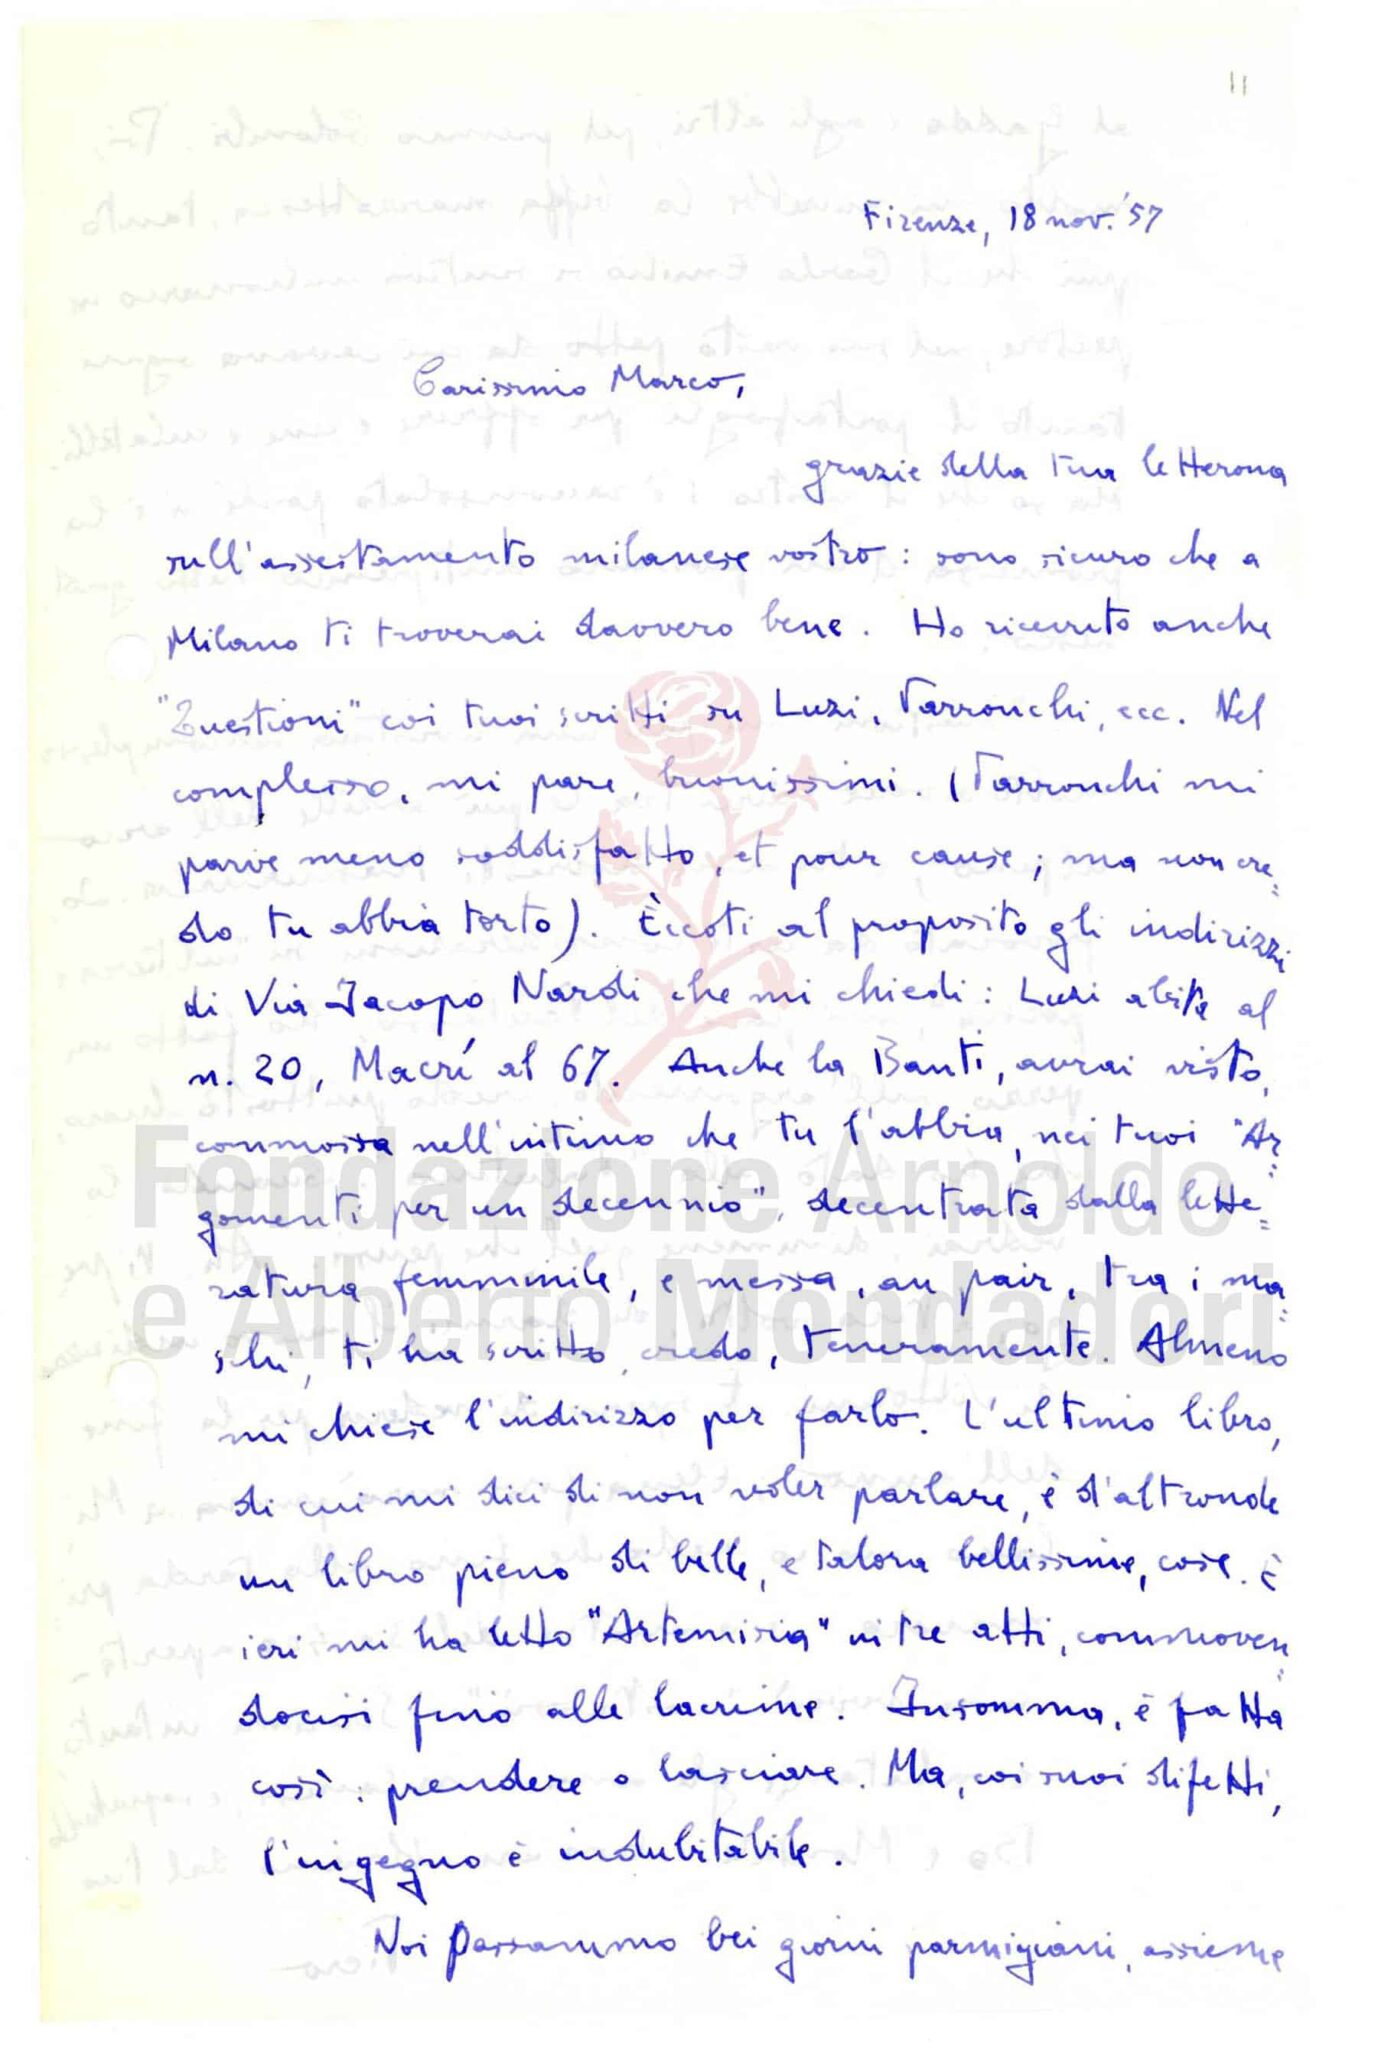 11
Firenze, 18 nov. '57
Carissimo Marco,
grazie della tua letterona
sull'assestamento milanese vostro: sono sicuro che a
Milano ti troverai davvero bene. Ho ricevuto anche
"Questioni" coi tuoi scritti su Luzi, Parronchi, ecc. Nel
complesso, mi pare, buonissimi. (Parronchi mi
parve meno soddisfatto, et pour cause; ma non cre=
do tu abbia torto). Èccoti al proposito gli indirizzi
di Via Jacopo Nardi che mi chiedi: Luzi abita al
n. 20, Macrí al 67. Anche la Banti, avrai visto,
commossa nell'intimo che tu l'abbia, nei tuoi "Ar=
gomenti per un decennio", decentrata dalla lette=
ratura femminile, e messa, au pair, tra i ma=
schi, ti ha scritto, credo, teneramente. Almeno
mi chiese l'indirizzo per farlo. L'ultimo libro,
di cui mi dici di non voler parlare, è d'altronde
un libro pieno di belle, e talora bellissime, cose. E
ieri mi ha letto "Artemisia" in tre atti, commoven=
docisi fino alle lacrime. Insomma, è fatta
così: prendere o lasciare. Ma, coi suoi difetti,
l'ingegno è indubitabile.
Noi passammo bei giorni parmigiani, assieme
Fondazione Arnoldo
e Alberto Mondadori